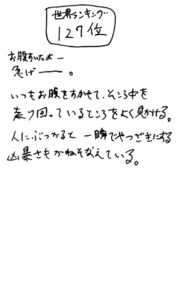 世界ランキング
127位
お腹すいたよー
急げ――。
いつもお腹をすかせて、そこら中を
走り回っているところをよく見かける。
人にぶつかると一瞬でやつざきにする
凶暴さもかねそなえている。